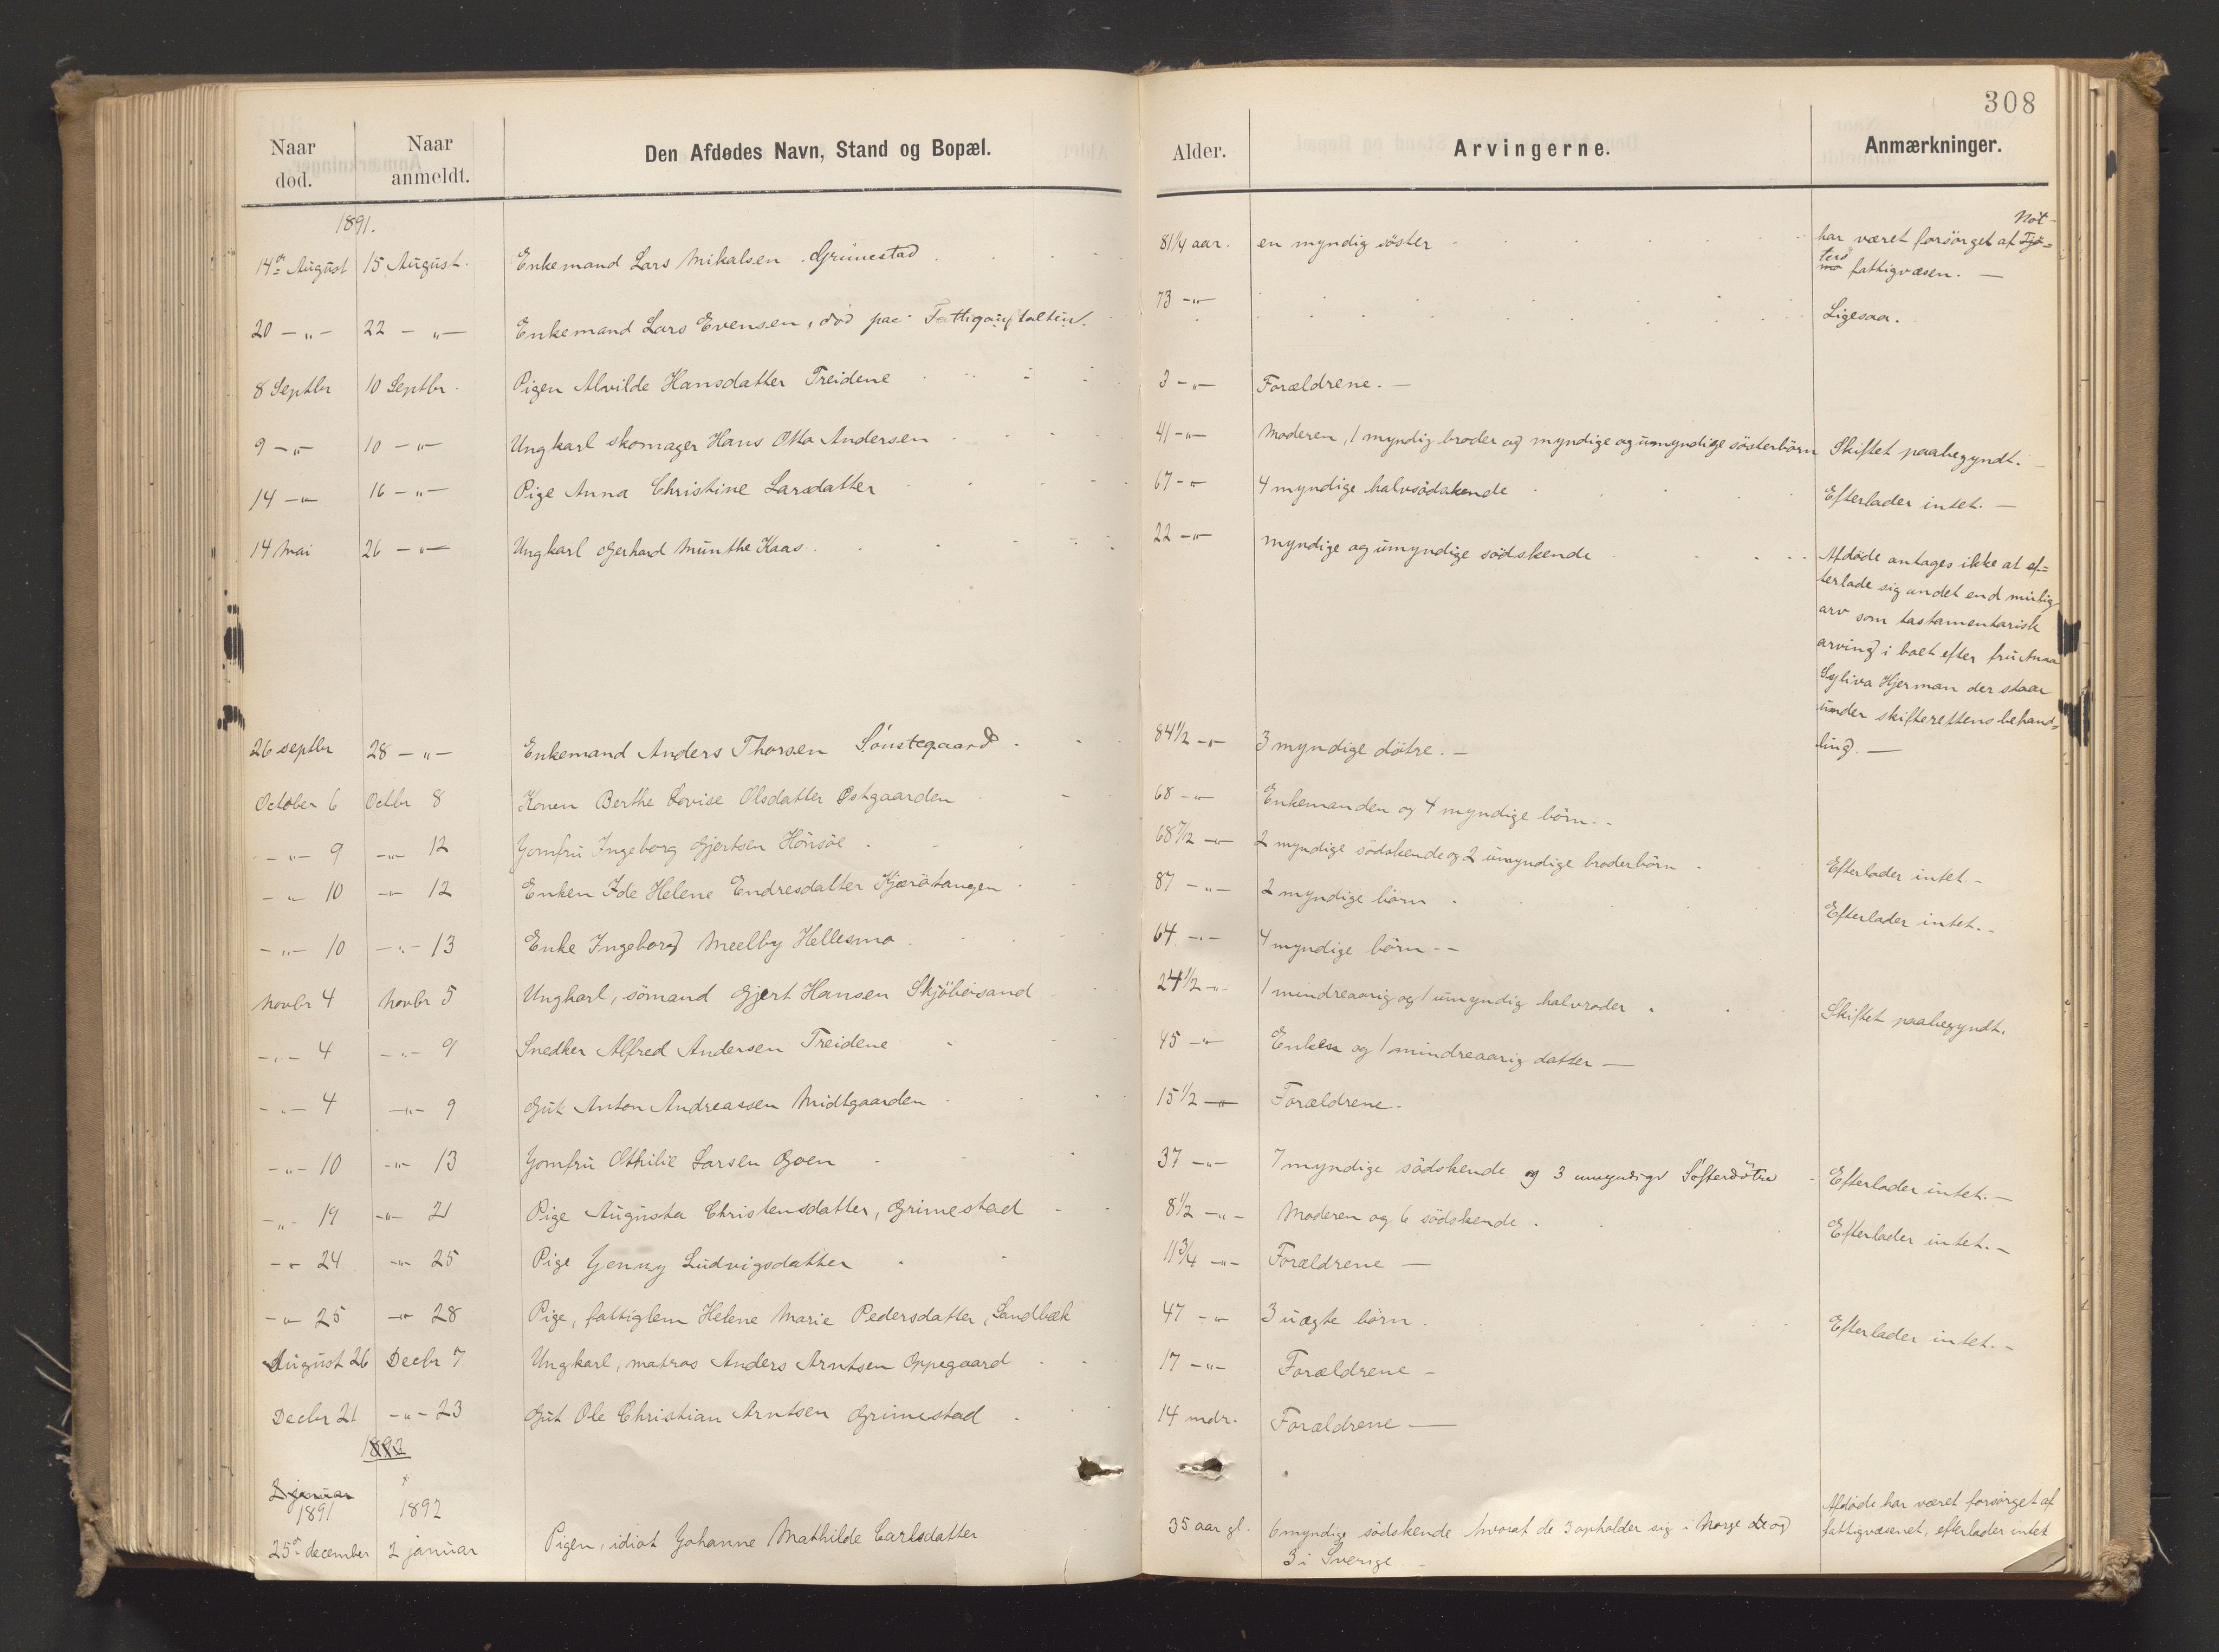 308
Naar død. Naar anmeldt. Den Afdødes Navn, Stand og Bopæl. Alder. Arvingerne. Anmærkninger.
1891.
14de August 15 August. Enkemand Lars Mikalsen Grimestad 81 1/4 aar. en myndig søster har været forsørget af Nøt-
terø fattigvæsen. —
20 —„— 22 —„— Enkemand Lars Evensen, død paa Fattiganstalten. 73 —„— Ligesaa.
8 Septbr 10 Septbr. Pigen Alvilde Hansdatter Treidene 3 —„— Forældrene. —
9 —„— 10 —„— Ungkarl skomager Hans Otto Andersen 41 —„— Moderen, 1 myndig broder og myndige og umyndige søsterbørn Skiftet paabegyndt. —
14 —„— 16 —„— Pige Anna Christine Larsdatter 67 —„— 4 myndige halvsødskende Efterlader intet. —
14 Mai 26 —„— Ungkarl Gerhard Munthe Kaas. 22 —„— Myndige og umyndige sødskende Afdøde antages ikke at ef=
terlade sig andet end mulig
arv som tastamentarisk
arving i boet efter fru Anna
Syliva Hjerman der staar
under skifterettens behand=
ling. —
26 septbr 28 —„— Enkemand Anders Thorsen Sønstegaard 84 1/2 —„— 3 myndige døtre. —
October 6 Octbr 8 Konen Berthe Lovise Olsdatter Østgaarden 68 —„— Enkemanden og 4 myndige børn. -
—„— 9 —„— 12 Jomfru Ingeborg Gjertsen Hønsøe 68 7/12 —„— 2 myndige sødskende og 2 umyndige broderbørn Efterlader intet -
—„— 10 —„— 12 Enken Ide Helene Endresdatter Kjøretangen 87 —„— 2 myndige børn Efterlader intet. -
—„— 10 —„— 13 Enke Ingeborg Meelby Hellesmo 64 —„— 4 myndige børn - -
Novbr 4 Novbr 5 Ungkarl, sømand Gjert Hansen 24 1/2 —„— 1 mindreaarig og 1 umyndig halvroder Skiftet paabegyndt.
—„— 4 —„— 9 Snedker Alfred Andersen Treidene 45 —„— Enken og 1 mindreaarig datter —
—„— 4 —„— 9 Gut Anton Andreassen Midtgaarden 15 1/2 —„— Forældrene -
—„— 10 —„— 13 Jomfru Othilie Larsen Goen 37 —„— 7 myndige sødskende og 3 umyndige Søsterdøtre Efterlader intet. —
—„— 19 —„— 21 Pige Augusta Christensdatter, Grimestad 8 1/2 —„— Moderen og 6 sødskende. Efterlader intet. —
—„— 24 —„— 25 Pige Jenny Ludvigsdatter 11 3/4 —„— Forældrene —
—„— 25 —„— 28 Pige, fattiglem Helene Marie Pedersdatter, Sandbæk 47 —„— 3 uægte børn. Efterlader intet. -
August 26 Decbr 7 Ungkarl, matros Anders Arntsen Oppegaard 17 —„— Forældrene —
Decbr 21 —„— 23 Gut Ole Christian Arntsen Grimestad 14 mdr. Forældrene —
1892
2 januar
1891 1892
25de december 2 januar Pigen, idiot Johanne Mathilde Carlsdatter 35 aar gl. 6 myndige sødskende hvoraf de 3 opholder sig i Norge de og Afdøde har været forsørget af
3 i Sverige - fattigvæsenet, efterlader intet